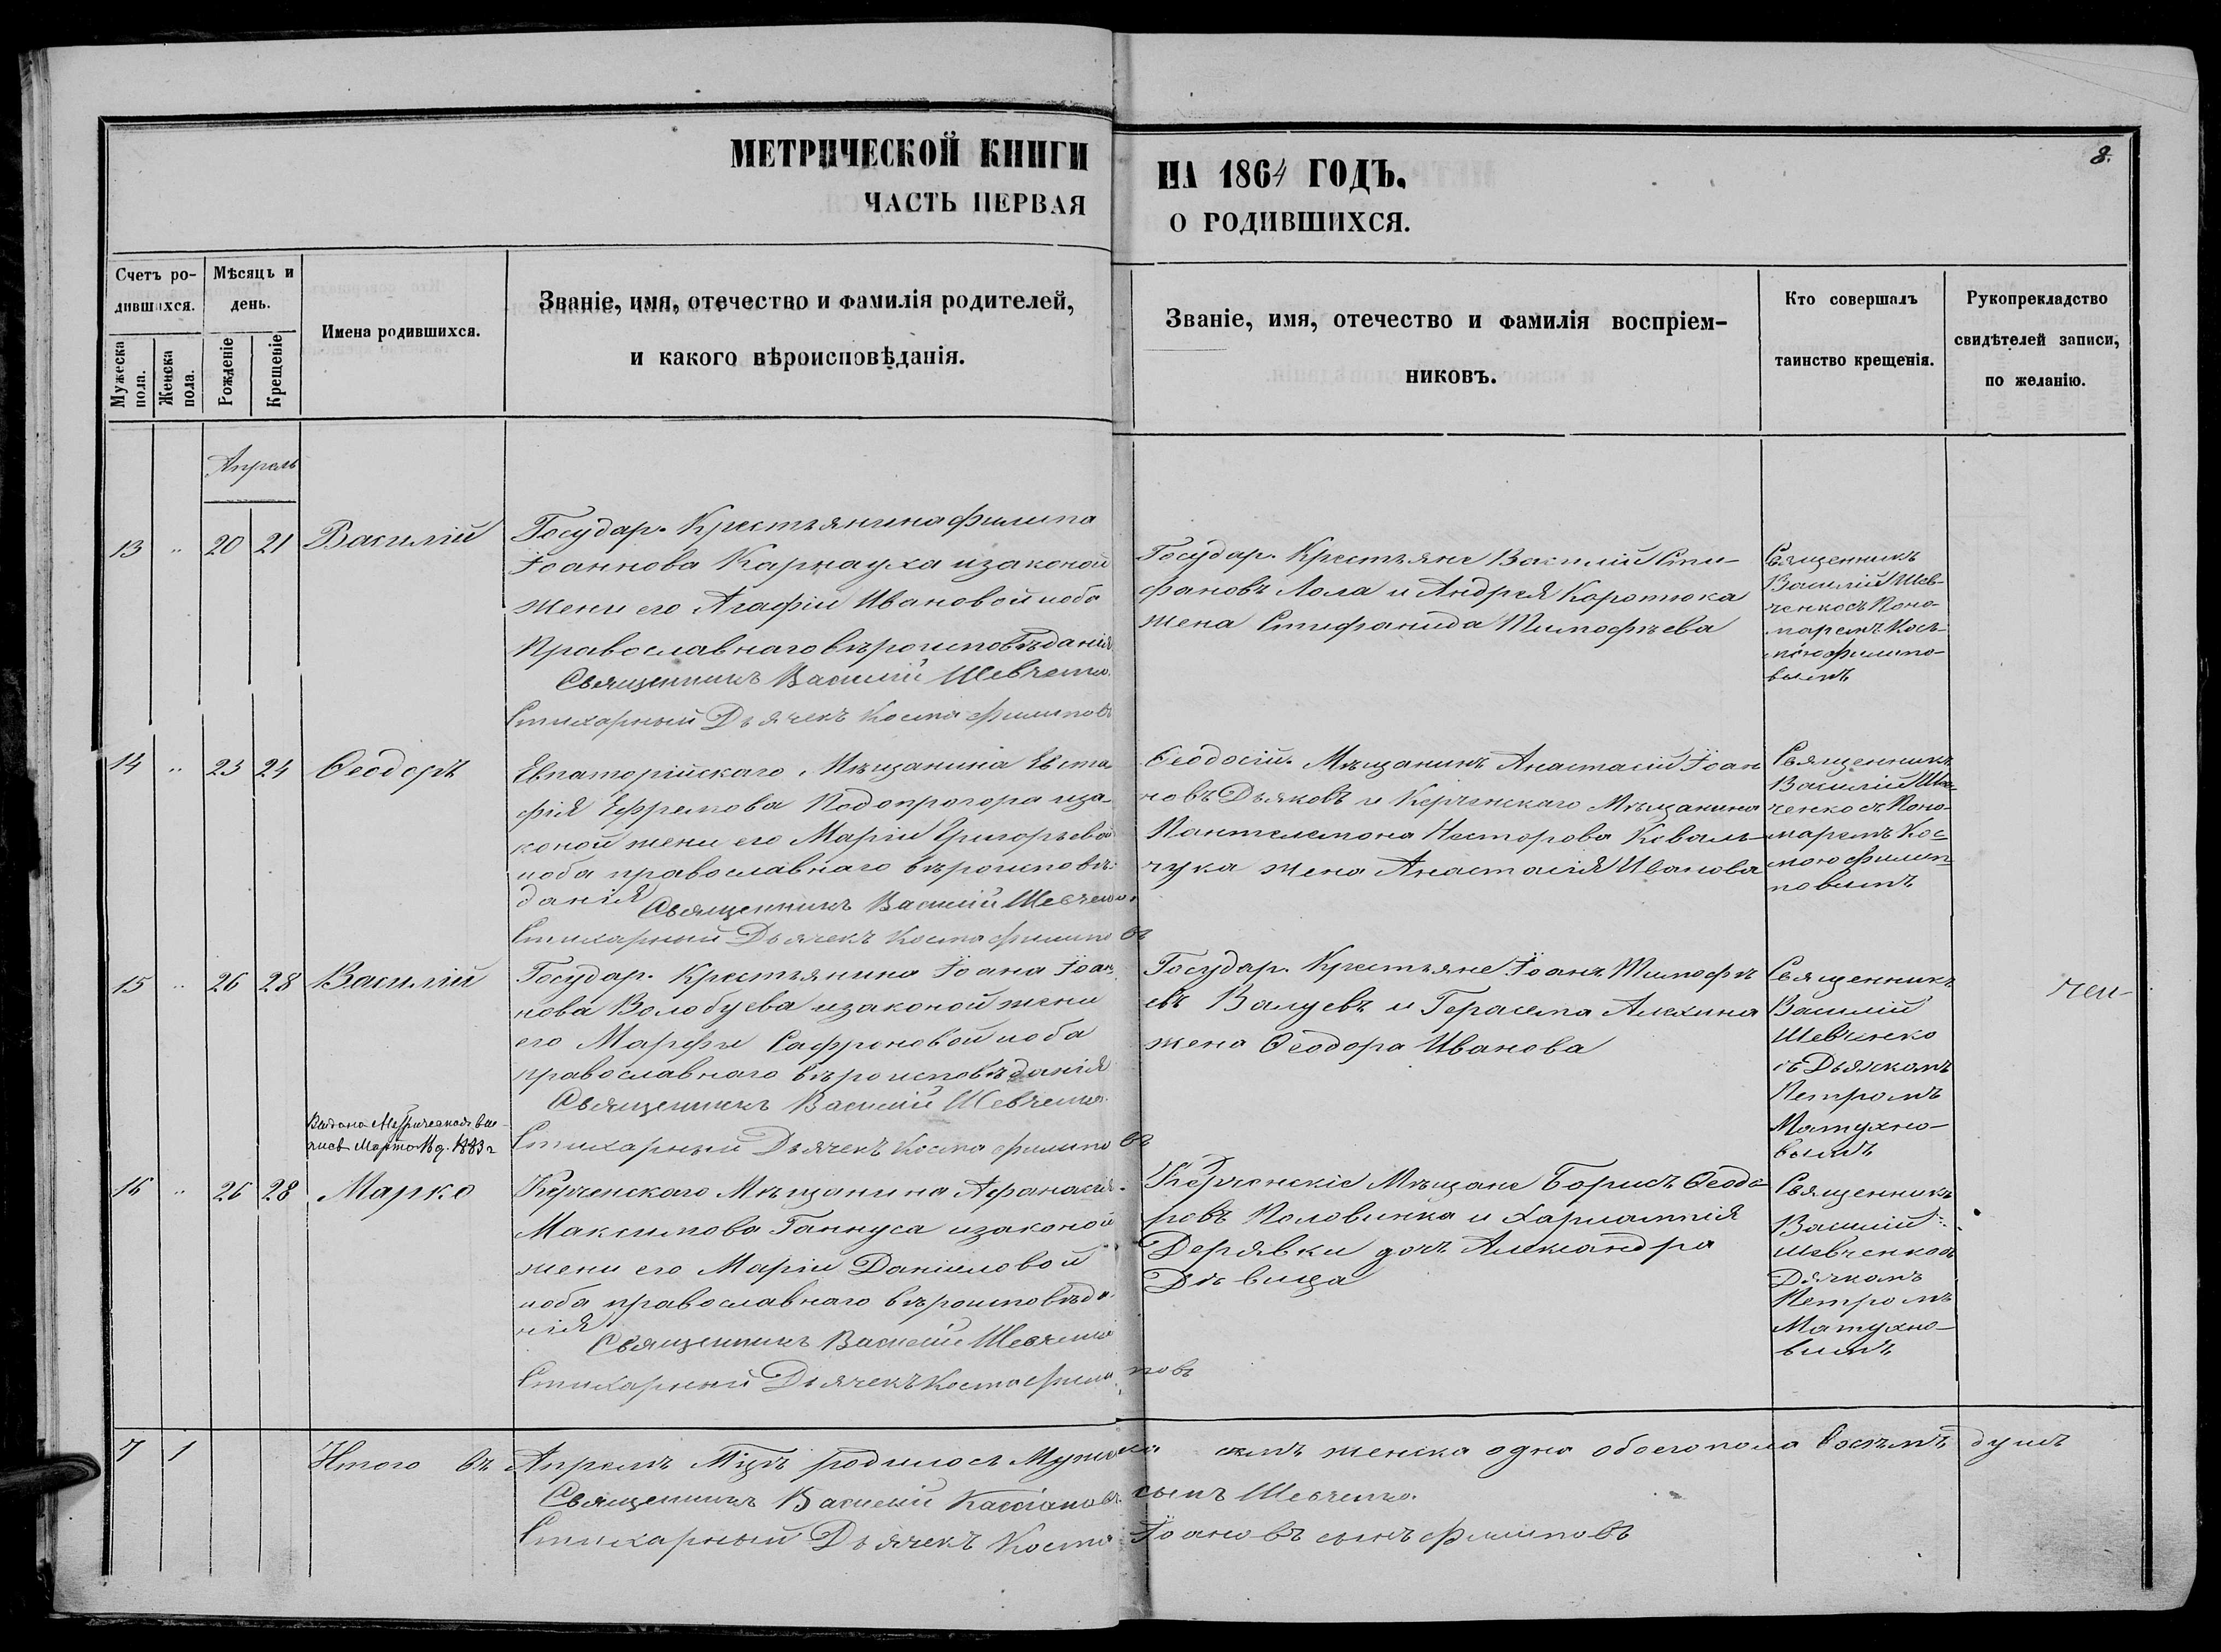 МЕТРИЧЕСКОЙ КНИГИ
ЧАСТЬ ПЕРВАЯ
НА 1864 ГОДЪ.
О РОДИВШИХСЯ.
8.
Счетъ ро-
дившихся.
Мужеска пола.
Женска пола.
Мѣсяцъ и
день.
Рожденіе
Крещеніе
Имена родившихся.
Званіе, имя, отечество и фамилія родителей,
и какого вѣроисповѣданія.
Званіе, имя, отечество и фамилія воспріем-
никовъ.
Кто совершалъ
таинство крещенія.
Рукопрекладство
свидѣтелей записи,
по желанію.
Апрель
13 " 20 21 Василій
Государ. Крестьянина Филипа
Іоаннова Карнауха и законой
жены его Агафіи Ивановой ноба
Православнаго вѣроисповѣданія
Священникъ Василій Шевченко.
Стихарный Дьячекъ Косма Филиповъ
Государ. Крестьяне Василій Сти-
фановъ Лола и Андрея Коротюка
жена Стифанида Тимофѣева
Священникъ
Василій Шев-
ченко съ Поно-
маремъ Кось-
мою Филипо-
вымъ
14 " 23 24 Ѳеодоръ
Евпаторійскаго Мѣщанина Евста
фія Ефремова Подопрогора и за-
коной жены его Маріи Григорьевой
ноба православнаго вѣроисповѣ-
данія
Священникъ Василій Шевченко.
Стихарный Дьячекъ Косма Филиповъ
Ѳеодосій. Мѣщанинъ Анастасій Іоан
новъ Дьяковъ и Керченскаго Мѣщанина
Пантелемона Несторова Коваль-
чука жена Анастасія Иванова
Священникъ
Василій Шев-
ченко съ Поно-
маремъ Кос-
мою Филип-
повымъ
15 " 26 28 Василій
Государ. Крестьянина Іоана Іоан
нова Волобуева и законой жены
его Марфы Сафроновой ноба
православнаго вѣроисповѣданія
Священникъ Василій Шевченко.
Стихарный Дьячекъ Косма Филиповъ
Государ. Крестьяне Іоанъ Тимофѣ
евъ Валуевъ и Герасема Алехина
жена Ѳеодора Иванова
Священникъ
Василій
Шевченко
съ Дьячкомъ
Петромъ
Матухно-
вымъ
Выдана Метрическая вы-
пись Марта 1883 г
16 " 26 28 Марко
Керченскаго Мѣщанина Афанасія
Максимова Ганнуса и законой
жены его Маріи Даниловой
ноба православнаго вѣроисповѣда-
нія
Священникъ Василій Шевченко
Стихарный Дьячекъ Косма Филиповъ
Керченскіе Мѣщане Борисъ Ѳеодо-
ровъ Половинка и Харлампія
Дерявки дочь Александра
Дѣвица
Священникъ
Василій
Шевченко съ
Дячкомъ
Петромъ
Матухно-
вымъ
7 1 Итого въ Апрелѣ Мцѣ родилось Мужеска семь женска одна обоего пола восемь душъ
Священникъ Василій Кассіановъ сынъ Шевченко.
Стихарный Дьячекъ Косма Іоановъ сынъ Филиповъ